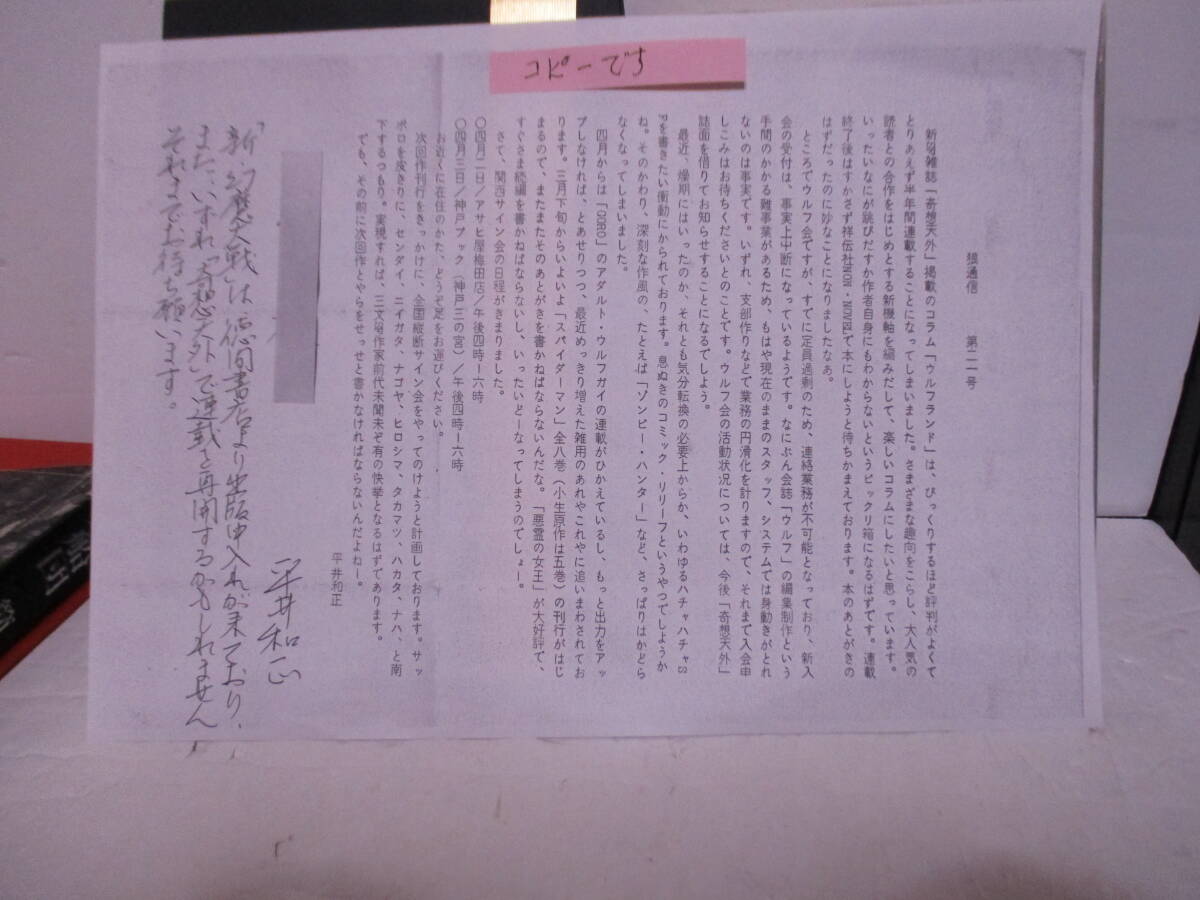 コピーです
狼通信　第二一号
新SF雑誌「奇想天外」掲載のコラム「ウルフランド」は、びっくりするほど評判がよくて
とりあえず半年間連載することになってしまいました。さまざまな趣向をこらし、大人気の
読者との合作をはじめとする新機軸を編みだして、楽しいコラムにしたいと思っています。
いったいなにが跳びだすか作者自身にもわからないというビックリ箱になるはずです。連載
終了後はすかさず祥伝社NON・NOVELで本にしようと待ちかまえております。本のあとがきの
はずだったのに妙なことになりましたなあ。
ところでウルフ会ですが、すでに定員過剰のため、連絡業務が不可能となっており、新入
会の受付は、事実上中断になっているようです。なにぶん会誌「ウルフ」の編集制作という
手間のかかる難事業があるため、もはや現在のままのスタッフ、システムでは身動きがとれ
ないのは事実です。いずれ、支部作りなどで業務の円滑化を計りますので、それまで入会申
しこみはお待ちくださいとのことです。ウルフ会の活動状況については、今後「奇想天外」
誌面を借りてお知らせすることになるでしょう。
最近、燥期にはいったのか、それとも気分転換の必要上からか、いわゆるハチャハチャS
Fを書きたい衝動にかられております。息ぬきのコミック・リリーフというやつでしょうか
ね。そのかわり、深刻な作風の、たとえば「ゾンビー・ハンター」など、さっぱりはかどら
なくなってしまいました。
四月からは「GORO」のアダルト・ウルフガイの連載がひかえているし、もっと出力をアッ
プしなければ、とあせりつつ、最近めっきり増えた雑用のあれやこれやに追いまわされてお
ります。三月下旬からいよいよ「スパイダーマン」全八巻（小生原作は五巻）の刊行がはじ
まるので、またまたそのあとがきを書かねばならないんだな。「悪霊の女王」が大好評で、
すぐさま続編を書かねばならないし、いったいどーなってしまうのでしょー。
さて、関西サイン会の日程がきまりました。
〇四月二日／アサヒ屋梅田店／午後四時ー六時
〇四月三日／神戸ブック（神戸三の宮）／午後四時ー六時
お近くに在住のかた、どうぞ足をお運びください。
次回作刊行をきっかけに、全国縦断サイン会をやってのけようと計画しております。サッ
ポロを皮きりに、センダイ、ニイガタ、ナゴヤ、ヒロシマ、タカマツ、ハカタ、ナハ、と南
下するつもり。実現すれば、三文SF作家前代未聞未ぞ有の快挙となるはずであります。
でも、その前に次回作とやらをせっせと書かなければならないんだよねー。
平井和正
平井和正
「新・幻魔大戦」は徳間書店より出版申入れが来ており、
また、いずれ「奇想天外」で連載を再開するかもしれません。
それまでお待ち願います。